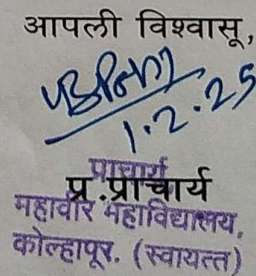 आपली विश्वासू,
1.2.25
प्राचार्य
प्र.प्राचार्य
महावीर महाविद्यालय,
कोल्हापूर. (स्वायत्त)